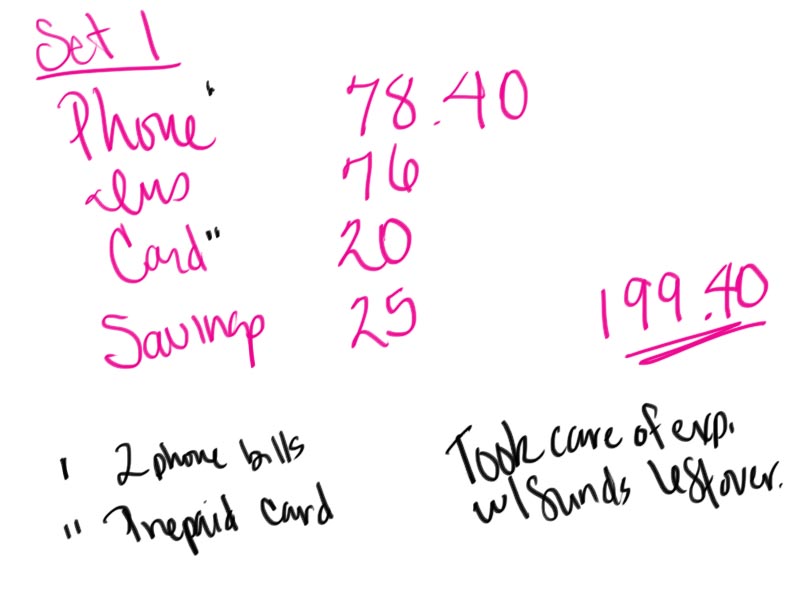 Set 1
Phone' 78.40
Ins 76
Card" 20
Savings 25
199.40
' 2 phone bills
" Prepaid card
Took care of exp.
w/ funds leftover.